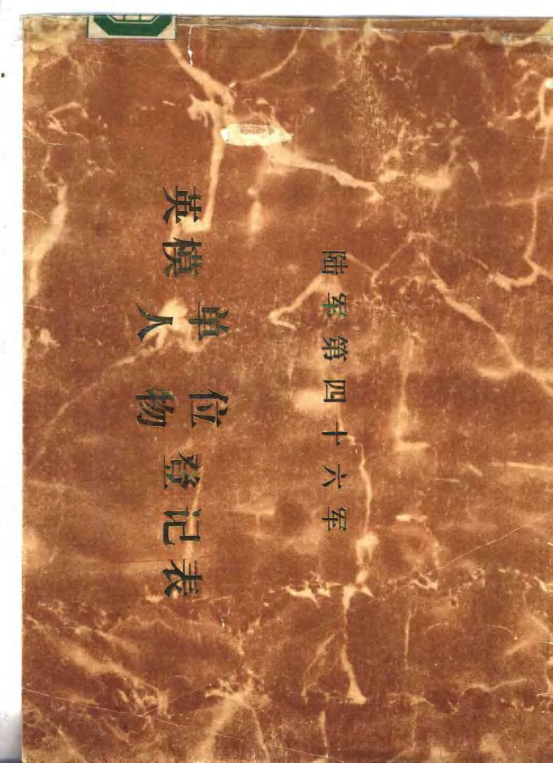 陆军第四十六军
英模单位人物登记表